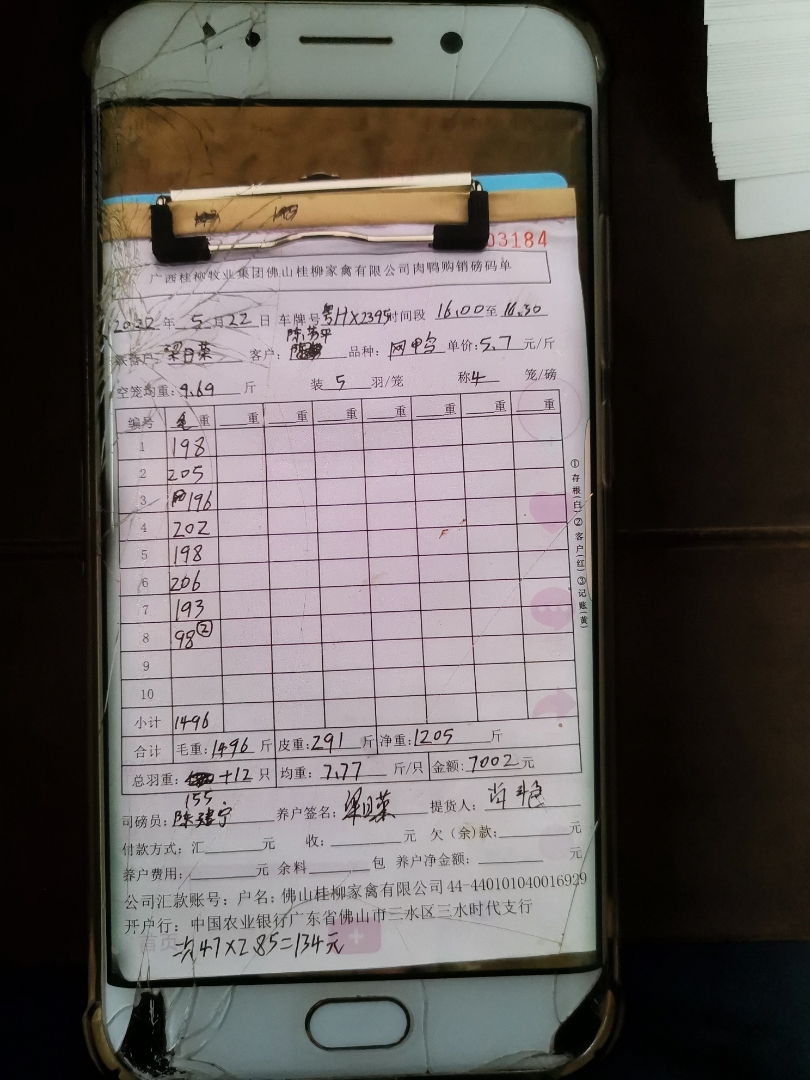 03184
广西桂柳牧业集团佛山桂柳家禽有限公司肉鸭购销磅码单
2022 年 5 月 22 日 车牌号 粤HX2395 时间段 16:00 至 16:30
养户: 梁日葉 客户: 品种: 网鸭 单价: 5.7 元/斤
空笼均重: 9.69 斤 装 5 羽/笼 称 4 笼/磅
编号 毛 重 重 重 重 重 重 重 重
1 198
2 205
3 196
4 202
5 198
6 206
7 193
8 98 ②
9
10
小计 1496
合计 毛重: 1496 斤 皮重: 291 斤 净重: 1205 斤
总羽重: +12 只 均重: 7.77 斤/只 金额: 7002 元
155
司磅员: 陈建宁 养户签名: 梁日葉 提货人:
付款方式: 汇 元 收: 元 欠(余)款: 元
养户费用: 元 余料 包 养户净金额: 元
公司汇款账号: 户名: 佛山桂柳家禽有限公司 44-440101040016929
开户行: 中国农业银行广东省佛山市三水区三水时代支行
47×2.85=134元
①存根(白)②客户(红)③记账(黄)
首页